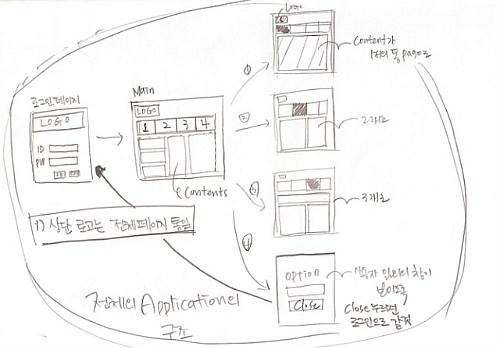 로그인페이지
LOGO
ID
PW
Main
LOGO
1 2 3 4
contents
Logo
①
Content가
1개의 통 page로
②
2개로
③
3개로
④
option
Close
보이도록
Close 누르면
로그인으로 갈것
1) 상단 로고는 전체페이지 통일
전체의 Application의
구조